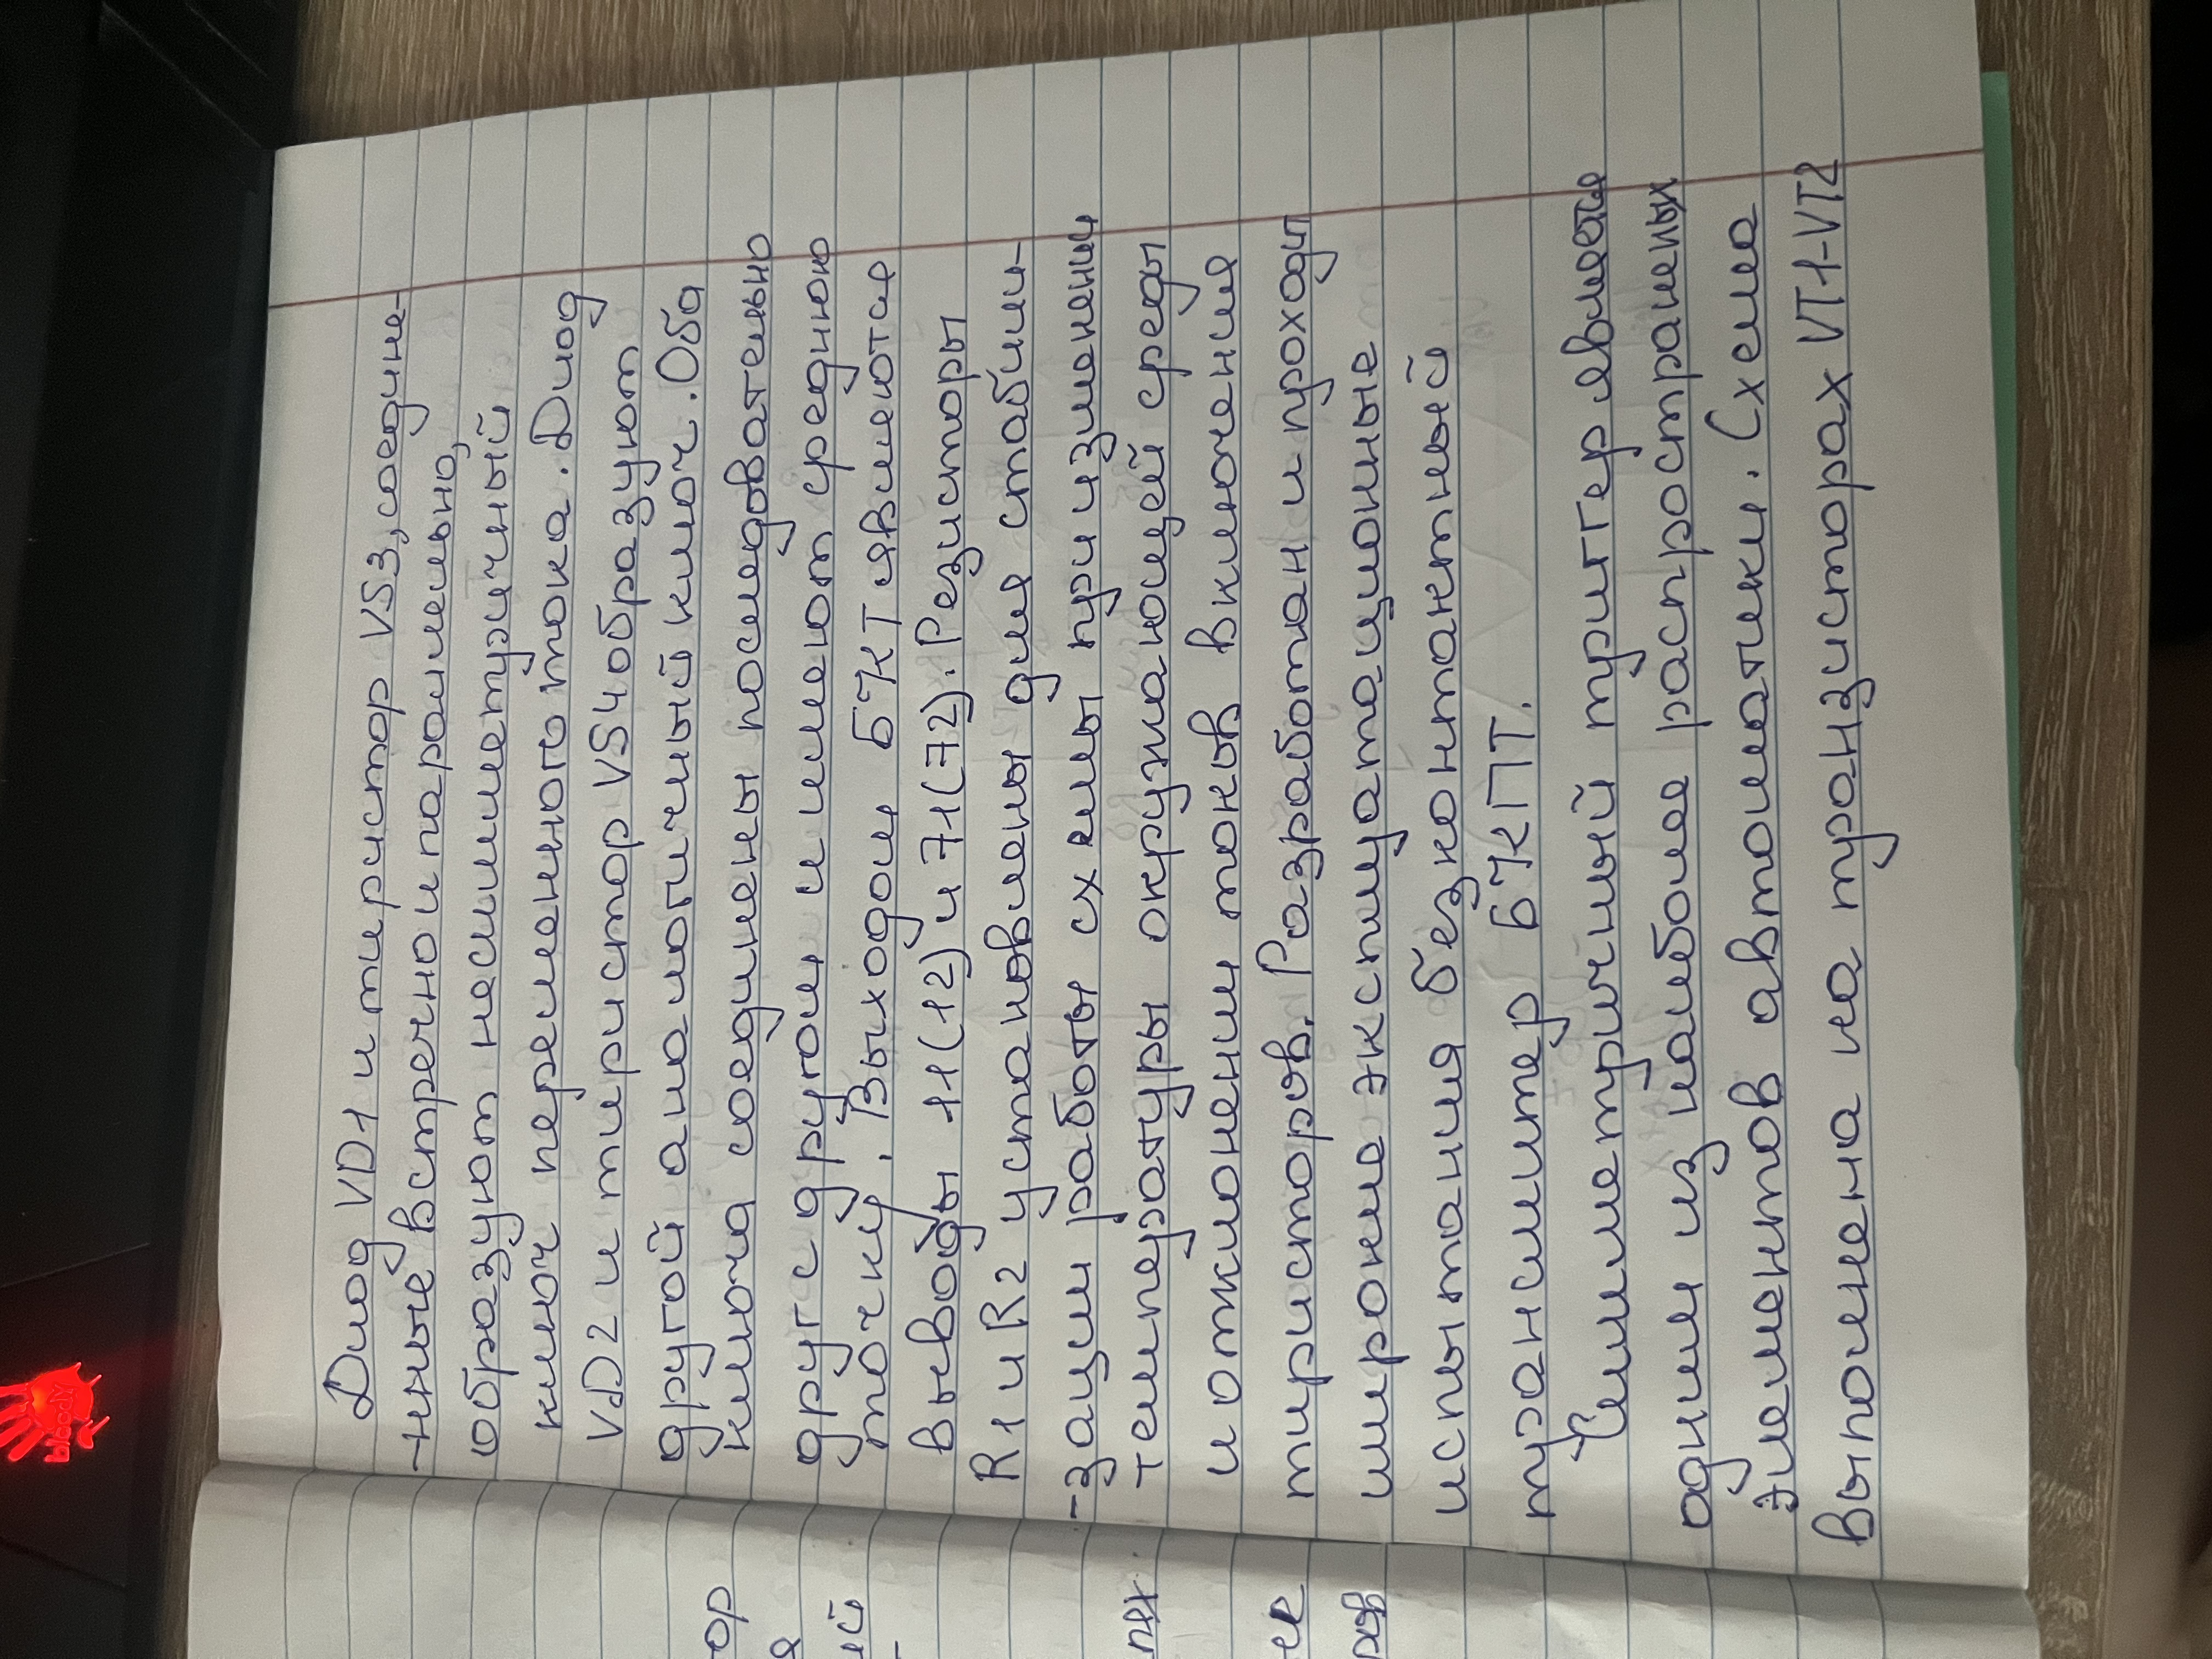 Диод VD1 и тиристор VS3, соедине-
-нные встречно и параллельно,
образуют несимметричный
ключ переменного тока. Диод
VD2 и тиристор VS4 образуют
другой аналогичный ключ. Оба
ключа соединены последовательно
друг с другом и имеют среднюю
точку. Выходом БЧКТ являются
выводы 11(12) и 71(72). Резисторы
R1 и R2 установлены для стабили-
-зации работы схемы при изменении
температуры окружающей среды
и отклонении токов включения
тиристоров. Разработан и проходит
широкие эксплуатационные
испытания бесконтактный
трансмиттер БЧКПТ.
Симметричный триггер является
одним из наиболее распространенных
элементов автоматики. Схема
выполнена на транзисторах VT1-VT2
ор
е
ий
bloody